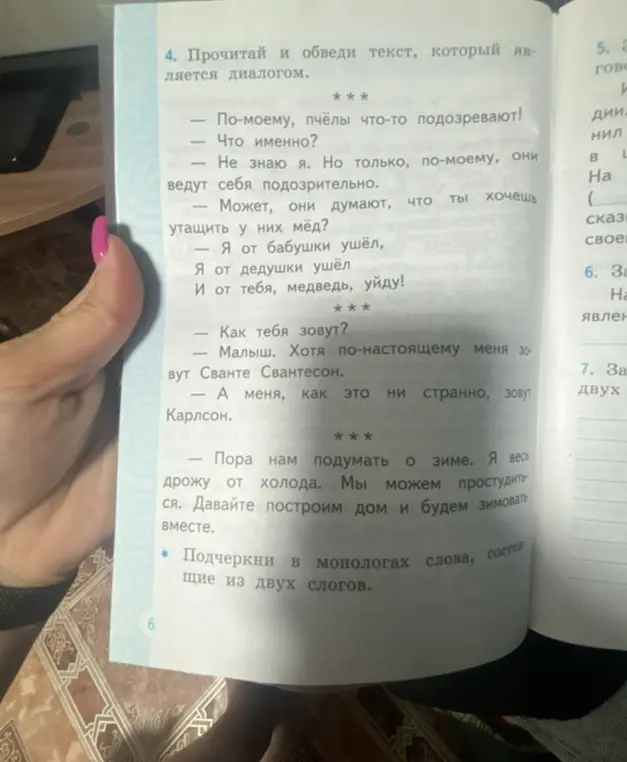 4. Прочитай и обведи текст, который яв-
ляется диалогом.
* * *
— По-моему, пчёлы что-то подозревают!
— Что именно?
— Не знаю я. Но только, по-моему, они
ведут себя подозрительно.
— Может, они думают, что ты хочешь
утащить у них мёд?
— Я от бабушки ушёл,
Я от дедушки ушёл
И от тебя, медведь, уйду!
* * *
— Как тебя зовут?
— Малыш. Хотя по-настоящему меня зо-
вут Сванте Свантесон.
— А меня, как это ни странно, зовут
Карлсон.
* * *
— Пора нам подумать о зиме. Я весь
дрожу от холода. Мы можем простудить-
ся. Давайте построим дом и будем зимовать
вместе.
• Подчеркни в монологах слова, состоя-
щие из двух слогов.
6
5.
гов
дии
нил
в
На
(
сказ
свое
6. За
На
явлен
7. За
двух